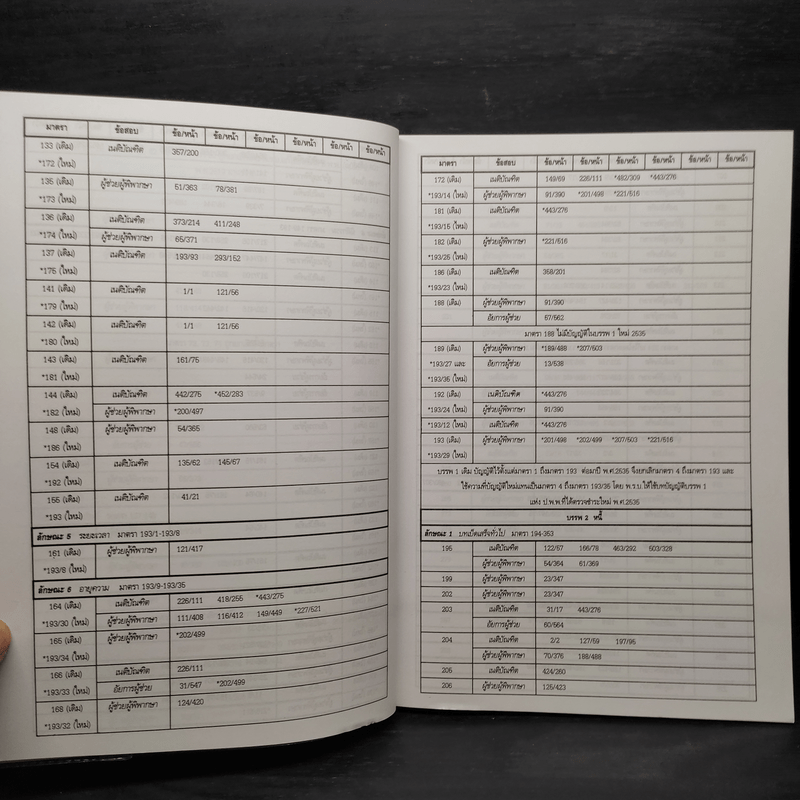 มาตรา ข้อสอบ ข้อ/หน้า ข้อ/หน้า ข้อ/หน้า ข้อ/หน้า ข้อ/หน้า ข้อ/หน้า
133 (เดิม) เนติบัณฑิต 357/200
*172 (ใหม่)
135 (เดิม) ผู้ช่วยผู้พิพากษา 51/363 78/381
*173 (ใหม่)
136 (เดิม) เนติบัณฑิต 373/214 411/248
*174 (ใหม่) ผู้ช่วยผู้พิพากษา 65/371
137 (เดิม) เนติบัณฑิต 193/93 293/152
*175 (ใหม่)
141 (เดิม) เนติบัณฑิต 1/1 121/56
*179 (ใหม่)
142 (เดิม) เนติบัณฑิต 1/1 121/56
*180 (ใหม่)
143 (เดิม) เนติบัณฑิต 161/75
*181 (ใหม่)
144 (เดิม) เนติบัณฑิต 442/275 *452/283
*182 (ใหม่) ผู้ช่วยผู้พิพากษา *200/497
148 (เดิม) ผู้ช่วยผู้พิพากษา 54/365
*186 (ใหม่)
154 (เดิม) เนติบัณฑิต 135/62 145/67
*192 (ใหม่)
155 (เดิม) เนติบัณฑิต 41/21
*193 (ใหม่)
ลักษณะ 5 ระยะเวลา มาตรา 193/1-193/8
161 (เดิม) ผู้ช่วยผู้พิพากษา 121/417
*193/8 (ใหม่)
ลักษณะ 6 อายุความ มาตรา 193/9-193/35
164 (เดิม) เนติบัณฑิต 226/111 418/255 *443/275
*193/30 (ใหม่) ผู้ช่วยผู้พิพากษา 111/408 116/412 149/449 *227/521
165 (เดิม) ผู้ช่วยผู้พิพากษา *202/499
*193/34 (ใหม่)
166 (เดิม) เนติบัณฑิต 226/111
*193/33 (ใหม่) อัยการผู้ช่วย 31/547 *202/499
168 (เดิม) ผู้ช่วยผู้พิพากษา 124/420
*193/32 (ใหม่)
มาตรา ข้อสอบ ข้อ/หน้า ข้อ/หน้า ข้อ/หน้า ข้อ/หน้า ข้อ/หน้า ข้อ/หน้า
172 (เดิม) เนติบัณฑิต 149/69 226/111 *482/309 *443/276
*193/14 (ใหม่) ผู้ช่วยผู้พิพากษา 91/390 *201/498 *221/516
181 (เดิม) เนติบัณฑิต *443/276
*193/15 (ใหม่)
182 (เดิม) ผู้ช่วยผู้พิพากษา *221/516
*193/25 (ใหม่)
186 (เดิม) เนติบัณฑิต 358/201
*193/23 (ใหม่)
188 (เดิม) ผู้ช่วยผู้พิพากษา 91/390
อัยการผู้ช่วย 57/562
มาตรา 188 ไม่มีบัญญัติในบรรพ 1 ใหม่ 2535
189 (เดิม) ผู้ช่วยผู้พิพากษา *189/488 *207/503
*193/27 และ อัยการผู้ช่วย 13/538
*193/35 (ใหม่)
192 (เดิม) เนติบัณฑิต *443/276
*193/24 (ใหม่) ผู้ช่วยผู้พิพากษา 91/390
*193/12 (ใหม่) เนติบัณฑิต *443/276
193 (เดิม) ผู้ช่วยผู้พิพากษา *201/498 *202/499 *207/503 *221/516
*193/29 (ใหม่)
บรรพ 1 เดิม บัญญัติไว้ตั้งแต่มาตรา 1 ถึงมาตรา 193 ต่อมาปี พ.ศ.2535 จึงยกเลิกมาตรา 4 ถึงมาตรา 193 และ
ใช้ความที่บัญญัติใหม่แทนเป็นมาตรา 4 ถึงมาตรา 193/35 โดย พ.ร.บ.ให้ใช้บทบัญญัติบรรพ 1
แห่ง ป.พ.พ.ที่ได้ตรวจชำระใหม่ พ.ศ.2535
บรรพ 2 หนี้
ลักษณะ 1 บทเบ็ดเสร็จทั่วไป มาตรา 194-353
195 เนติบัณฑิต 122/57 166/78 463/292 503/328
ผู้ช่วยผู้พิพากษา 54/364 61/369
199 ผู้ช่วยผู้พิพากษา 23/347
202 ผู้ช่วยผู้พิพากษา 23/347
203 เนติบัณฑิต 31/17 443/276
อัยการผู้ช่วย 60/564
204 เนติบัณฑิต 2/2 127/59 197/95
ผู้ช่วยผู้พิพากษา 70/376 188/488
205 เนติบัณฑิต 424/260
206 ผู้ช่วยผู้พิพากษา 125/423